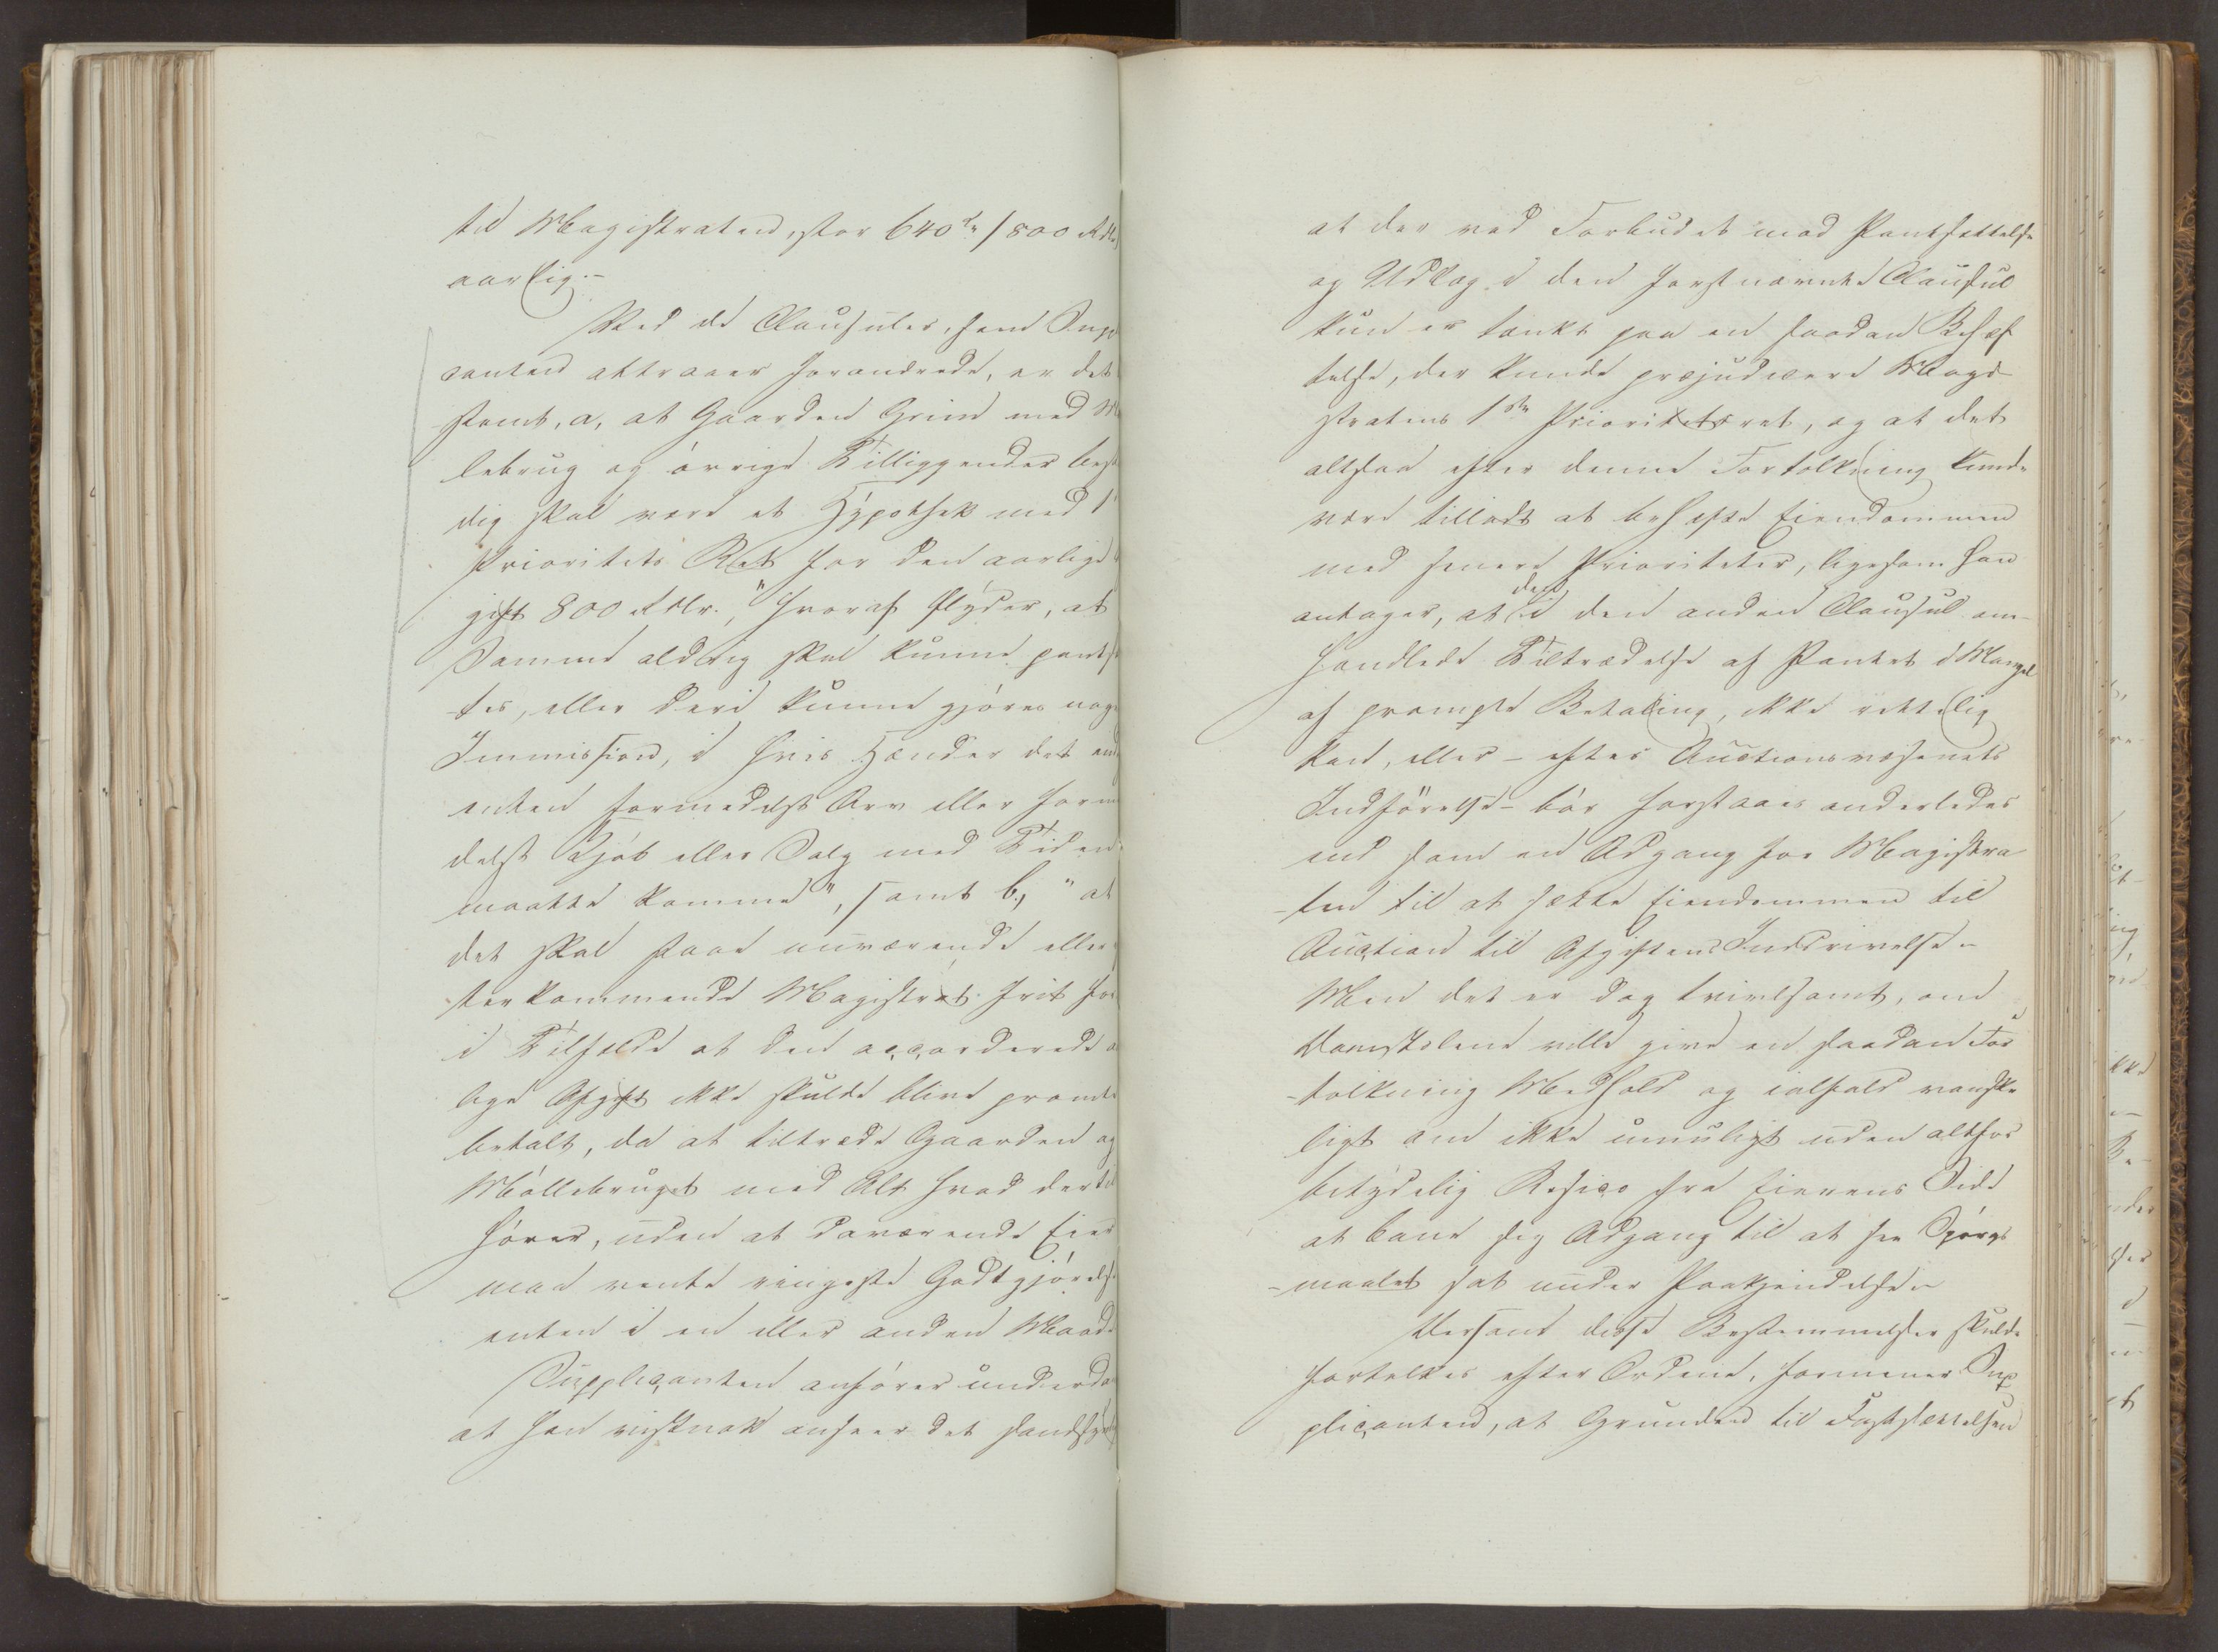 til Magistraten, stor 640 rd / 800 Rdlr
aarlig.-
Ved de Clausuler, som Supp
canten attraaer forandrede, er det
stemt, a, at Gaarden Grim med M
lebrug og övrige Tilliggender best
dig skal være et Hypothek med 1
Prioritets Ret for den aarlige
gift 800 Rdlr., "hvoraf flyder, at
Samme aldrig skal kunne pants
tes, eller deri kunne gjöres nog
Immission, i hvis Hænder det end
enten formedelst Arv eller form
delst Kjöb eller Salg med Tiden
maatte komme", samt b, "at
det skal staae nuværende eller
terkommende Magistrat frit for
i Tilfælde at den accorderede a
lige Afgift ikke skulde blive prompte
betalt, da at tiltræde Gaarden og
Möllebruget med Alt hvad dertil
hörer, uden at daværende Eier
maa vente ringeste Godtgjörelse
enten i en eller anden Maade
Supplicanten anförer underda
at han vistnok anseer det sandsyn
at der ved Forbudet mod Pantsættelse
og Udlæg i den förstnævnte Clausul
kun er tænkt paa en saadan Behæf
telse, der kunde præjudicere Magi-
stratens 1ste Prioritetsret, og at det
altsaa efter denne Fortolkning kunde
være tilladt at behæfte Eiendommen
med senere Prioriteter, ligesom han
antager, at den i den anden Clausul om-
handlede Tiltrædelse af Pantet i Mangel
af prompte Betaling, ikke rettelig
kan, eller - efter Auctionsvæsenets
Indförelse - bör forstaaes anderledes
end som en Adgang for Magistra
-ten til at sætte Eiendommen til
Auction til Afgiftens Inddrivelse.-
Men det er dog tvivlsomt, om
Domstolene ville give en saadan For
-tolkning Medhold og ialfald vanske
ligt om ikke umuligt uden altfor
betydelig Resico fra Eierens Side
at bane sig Adgang til at see Spörgs
-maalet sat under Paakjendelse.-
Dersom disse Bestemmelser skulde
fortolkes efter Ordene, formener Sup
plicanten, at Grunden til Fastsættelsen